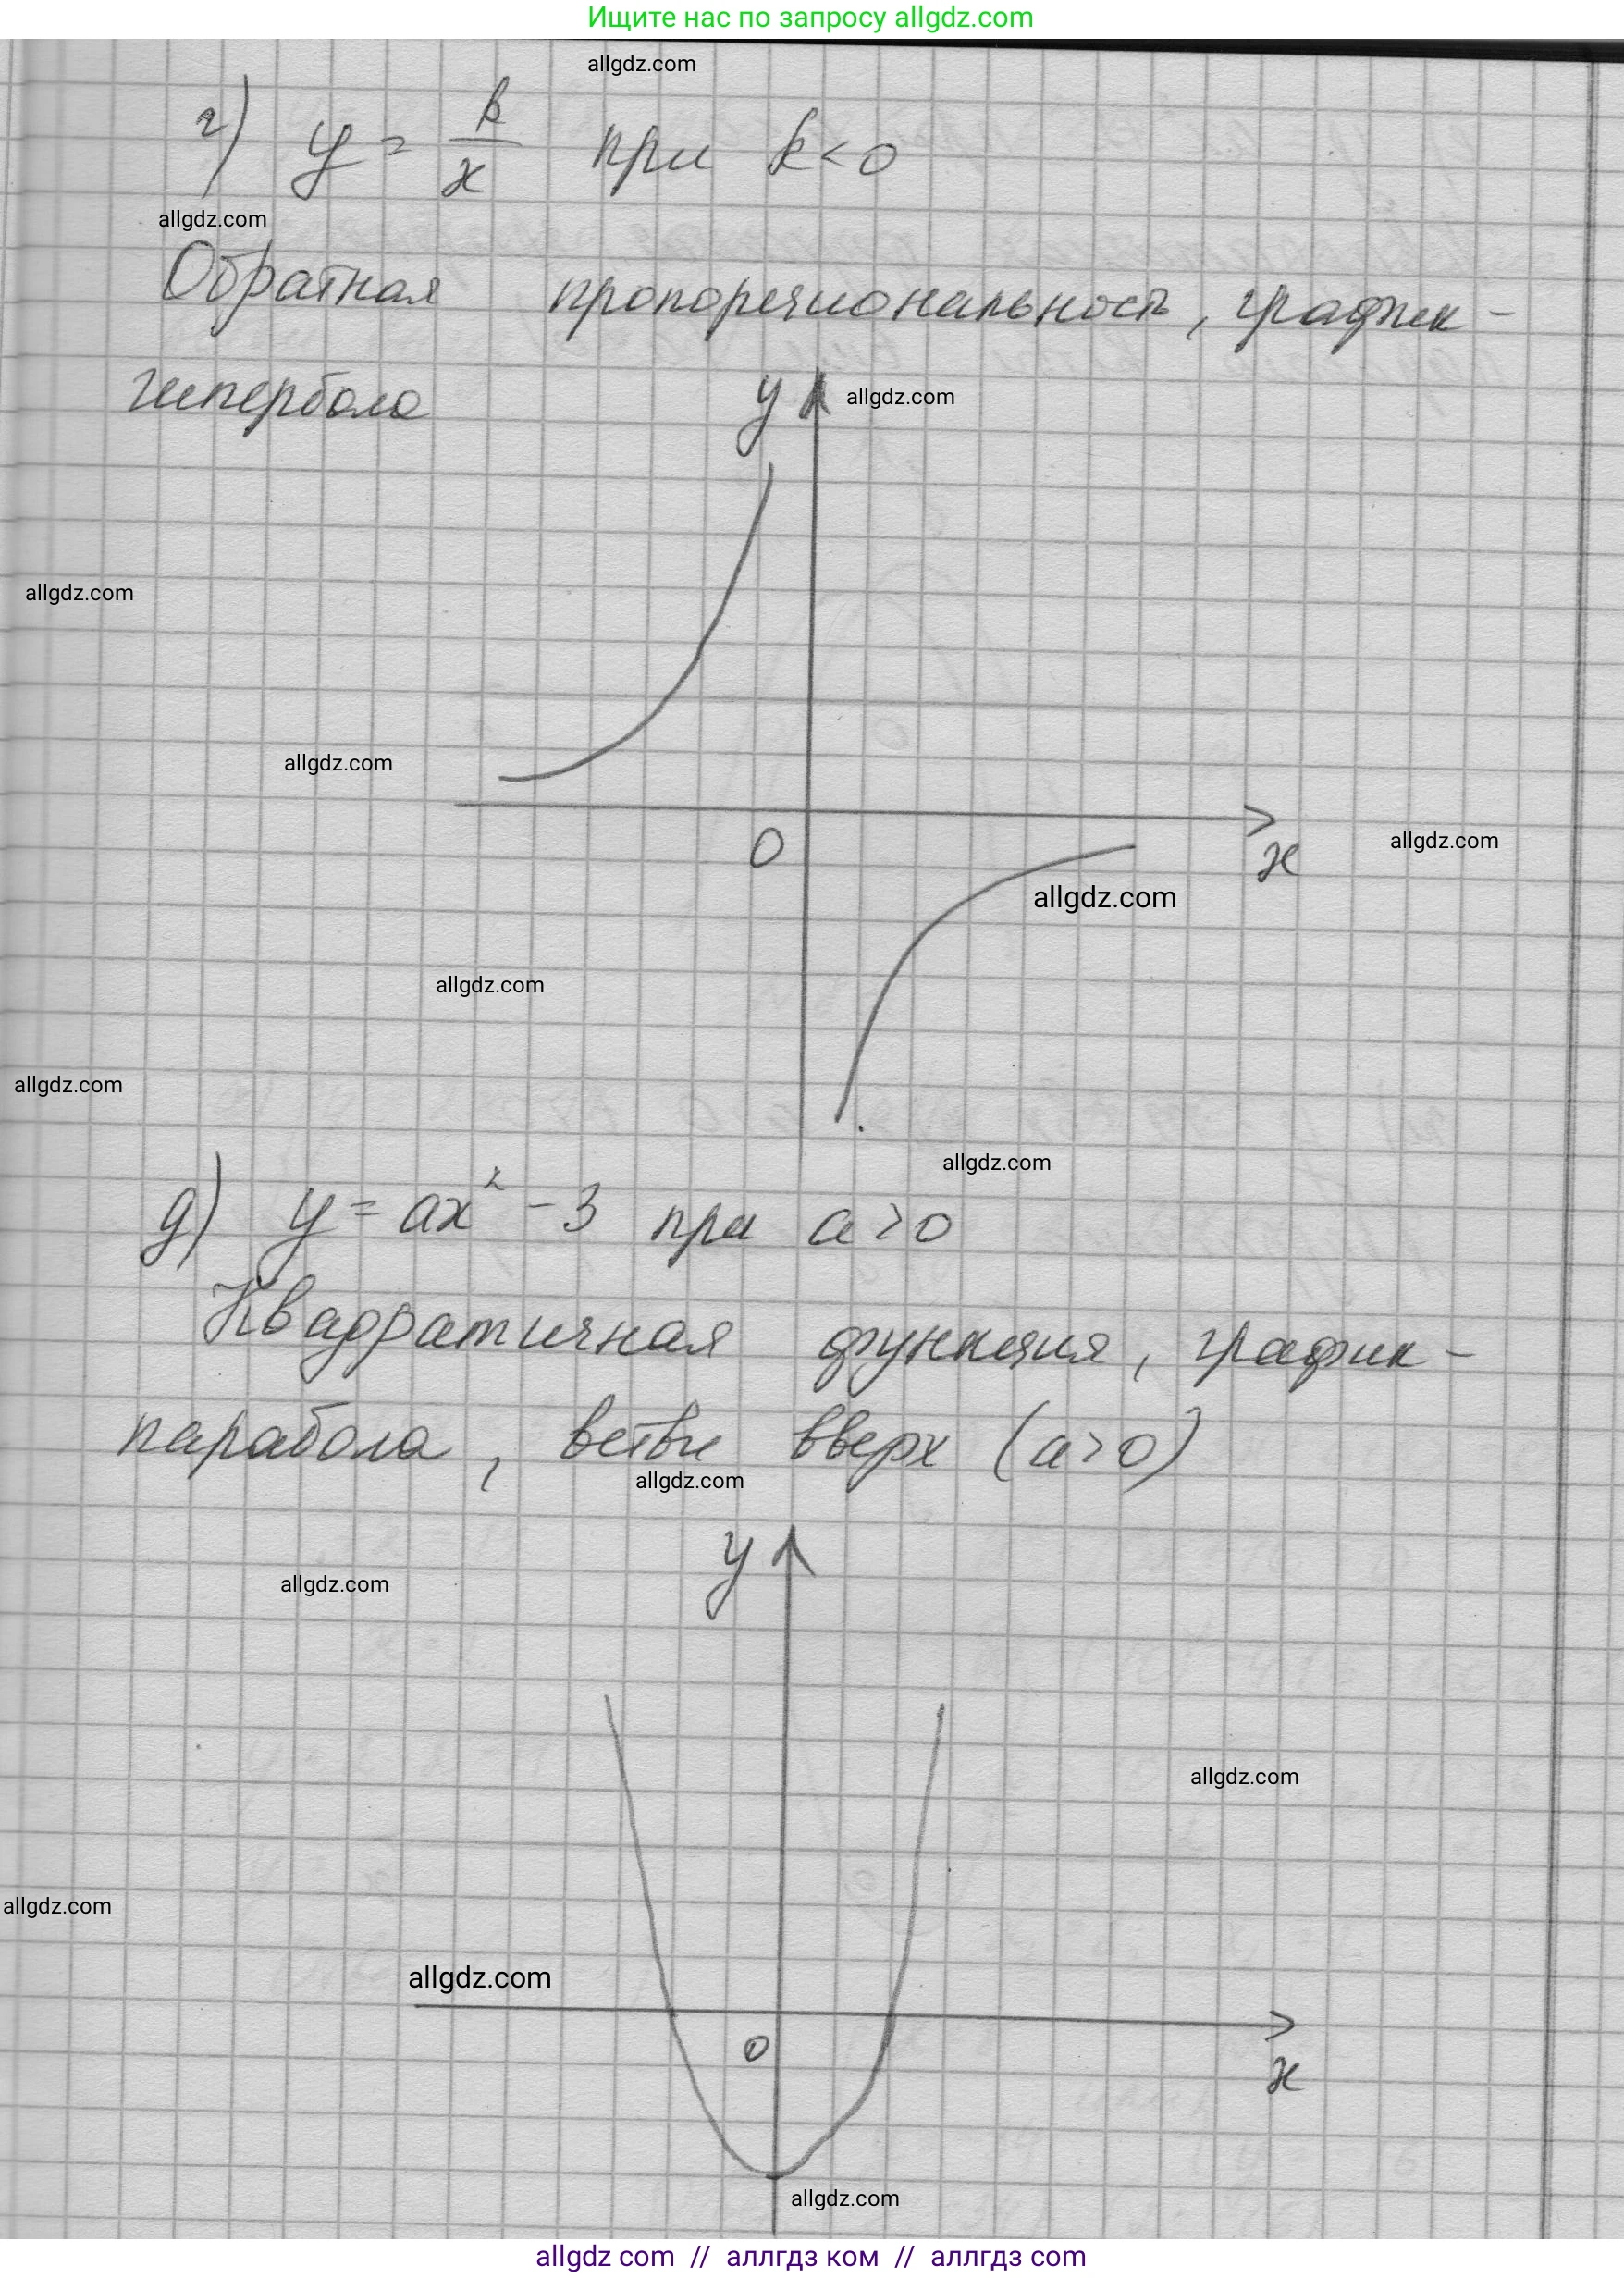 Ищите нас по запросу allgdz.com
allgdz.com
г) y = k/x при k < 0
allgdz.com
Обратная пропорциональность, график -
гипербола
y
allgdz.com
allgdz.com
allgdz.com
0
x
allgdz.com
allgdz.com
allgdz.com
allgdz.com
allgdz.com
д) y = ax² - 3 при a > 0
Квадратичная функция, график -
парабола, ветви вверх (a > 0)
allgdz.com
y
allgdz.com
allgdz.com
allgdz.com
allgdz.com
0
x
allgdz.com
allgdz com // аллгдз ком // аллгдз com